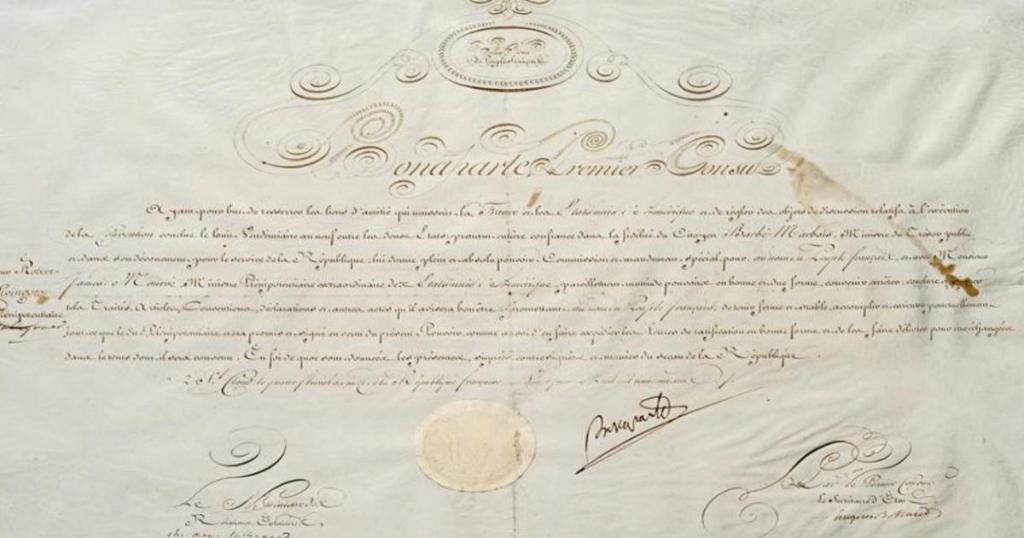 Bonaparte Premier Consul
Ayant pour but de resserrer les liens d'amitié qui unissent la France et les Etats unis d'Amérique et de régler des objets de discussion relatifs à l'exécution
de la Convention conclue le Vendémiaire an neuf entre les deux Etats, prenant entière confiance dans la fidélité du Citoyen Barbé Marbois, Ministre du Trésor public
et dans son dévouement pour le service de la République, lui donne plein et absolu pouvoir, Commission et mandement spécial pour, au nom du Peuple français, et avec Monsieur
Robert
James Monroë Ministre Plénipotentiaire extraordinaire des Etats unis d'Amérique, pareillement muni de pouvoirs en bonne et due forme, convenir arrêter, conclure
Livingston
Plénipotentiaire
tels Traités, Articles, Conventions, déclarations et autres actes qu'il avisera bon être, promettant au nom du Peuple français, de tenir ferme et stable, accomplir et exécuter ponctuellement
tout ce que le dit Plénipotentiaire aura promis et signé en vertu du présent Pouvoir, comme aussi d'en faire expédier les Lettres de ratification en bonne forme et de les faire délivrer pour être échangées
dans le tems dont il sera convenu. En foi de quoi sont données les présentes, signées contresignées et munies du sceau de la République
St. Cloud le de la République française
Bonaparte
Le Ministre des
Relations Extérieures
Par le Premier Consul
Le Secrétaire d'Etat
Hugues B. Maret